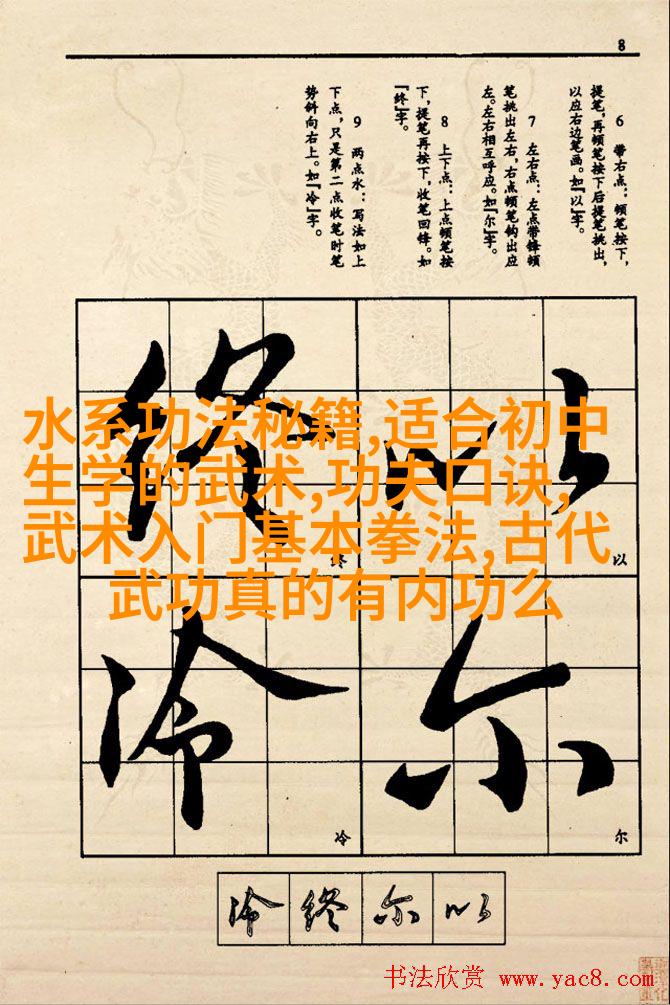 8
6　带右点：顿笔按下，
提笔，再顿笔按下后提笔挑出，
以应右边笔画。如『以』字。
7　左右点：左点带锋顿
笔挑出左右，右点顿笔钩出应
左。左右相互呼应。如『尔』字。
8　上下点：上点顿笔按
下，提笔再按下，收笔回锋。如
『终』字。
9　两点水：写法如上
下点，只是第二点收笔时笔
势斜向右上。如『冷』字。
终 以
水系功法秘籍,适合初中
生学的武术,功夫口诀,
武术入门基本拳法,古代
武功真的有内功么
终 以
冷 尔
冷 尔
冷 终 尔 以
书法欣赏 www.yac8.com